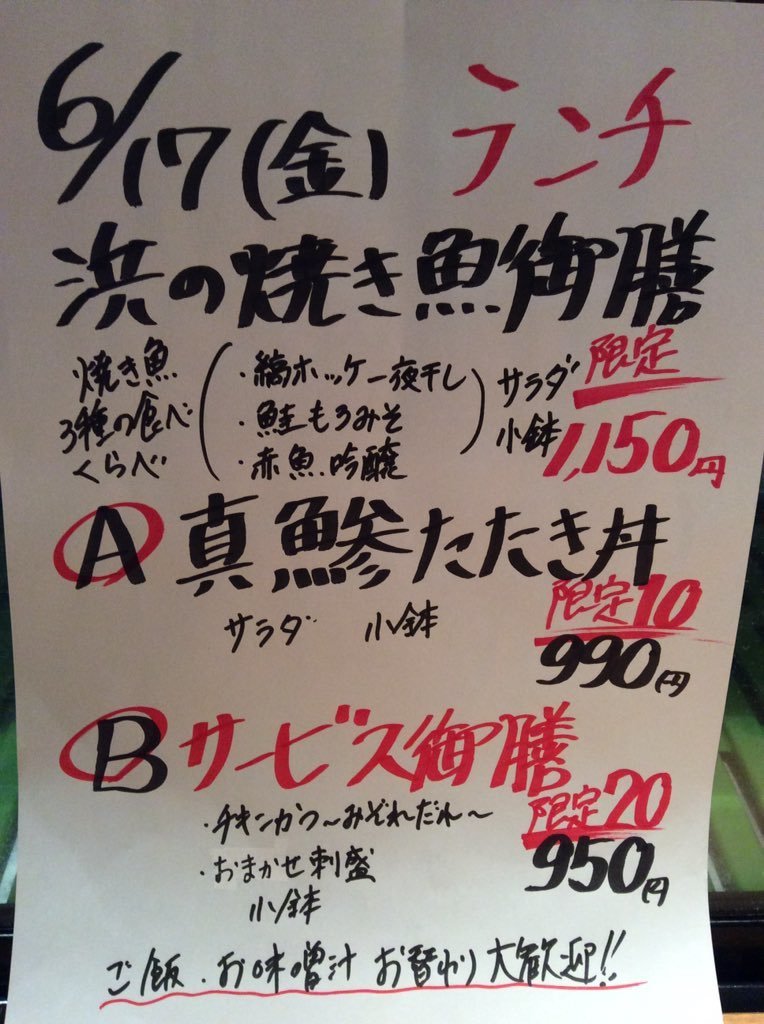 6/17(金) ランチ
浜の焼き魚御膳
焼き魚
3種の食べ
くらべ
・縞ホッケ一夜干し
・鮭もろみそ
・赤魚吟醸
サラダ
小鉢
限定
1,150円
A 真鯵たたき丼
サラダ 小鉢
限定10
990円
B サービス御膳
・チキンかつ〜みぞれだれ〜
・おまかせ刺盛
小鉢
限定20
950円
ご飯・お味噌汁 お替わり大歓迎!!